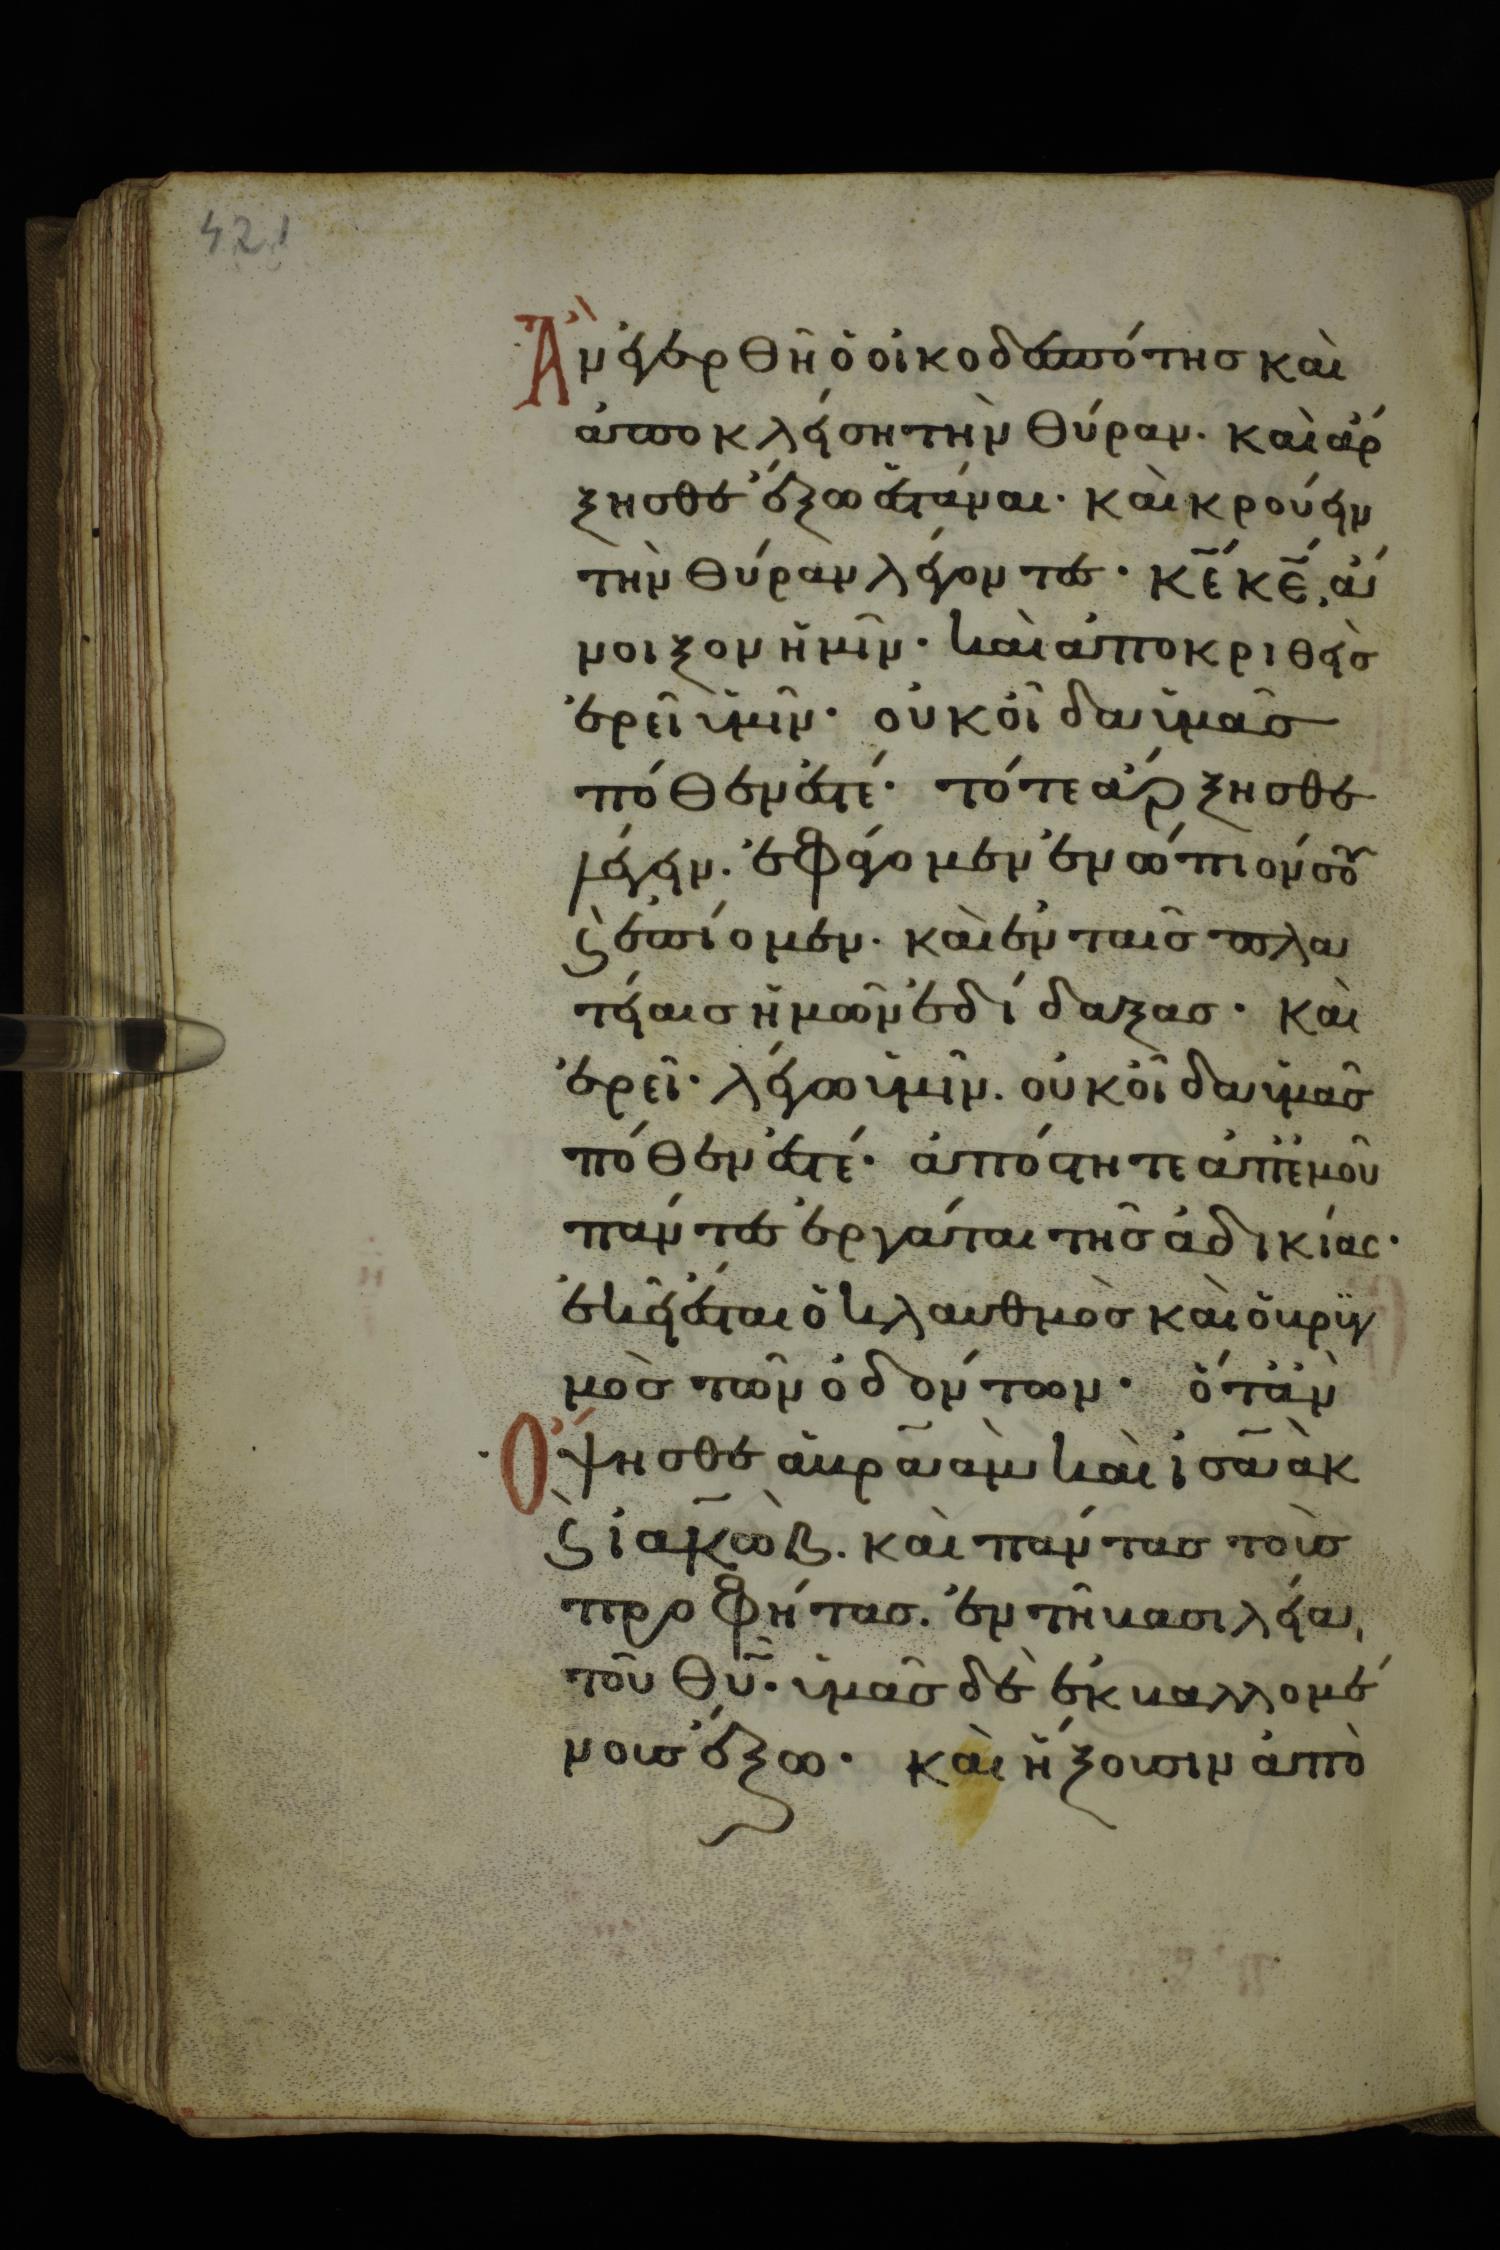 421
Ἂν ἐγερθῆ ὁ οἰκοδεσπότησ καὶ
ἀποκλείση τὴν θύραν· καὶ ἄρ
ξησθε ἔξω ἑστάναι· καὶ κρούειν
τὴν θύραν λέγοντεσ· κ̅ε̅ κ̅ε̅, ἄ
νοιξον ἡμῖν· καὶ ἀποκριθεὶσ
ἐρεῖ ὑμῖν· οὐκ οἶδα ὑμᾶσ
πόθεν ἐστέ· τότε ἄρξησθε
λέγειν· ἐφάγομεν ἐνώπιόν σου
ϗ ἐπίομεν· καὶ ἐν ταῖσ πλα
τείαισ ἡμῶν ἐδίδαξασ· καὶ
ἐρεῖ· λέγω ὑμῖν· οὐκ οἶδα ὑμᾶσ
πόθεν ἐστέ· ἀπόστητε ἀπ' ἐμοῦ
πάντεσ ἐργάται τῆσ ἀδικίας·
ἐκεῖ ἔσται ὁ κλαυθμὸσ καὶ ὁ βρυγ
μὸσ τῶν ὀδόντων· ὅτἂν
Ὄψησθε ἀβραὰμ καὶ ἰσαὰκ
ϗ ἰακὼβ· καὶ πάντασ τοὺσ
προφήτασ· ἐν τῆ βασιλεία,
τοῦ θ̅υ̅· ὑμᾶσ δὲ ἐκβαλλομέ
νουσ ἔξω· καὶ ἥξουσιν ἀπὸ